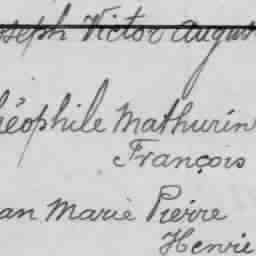 oseph Victor August
héophile Mathurin
François
an Marie Pierre
Henri